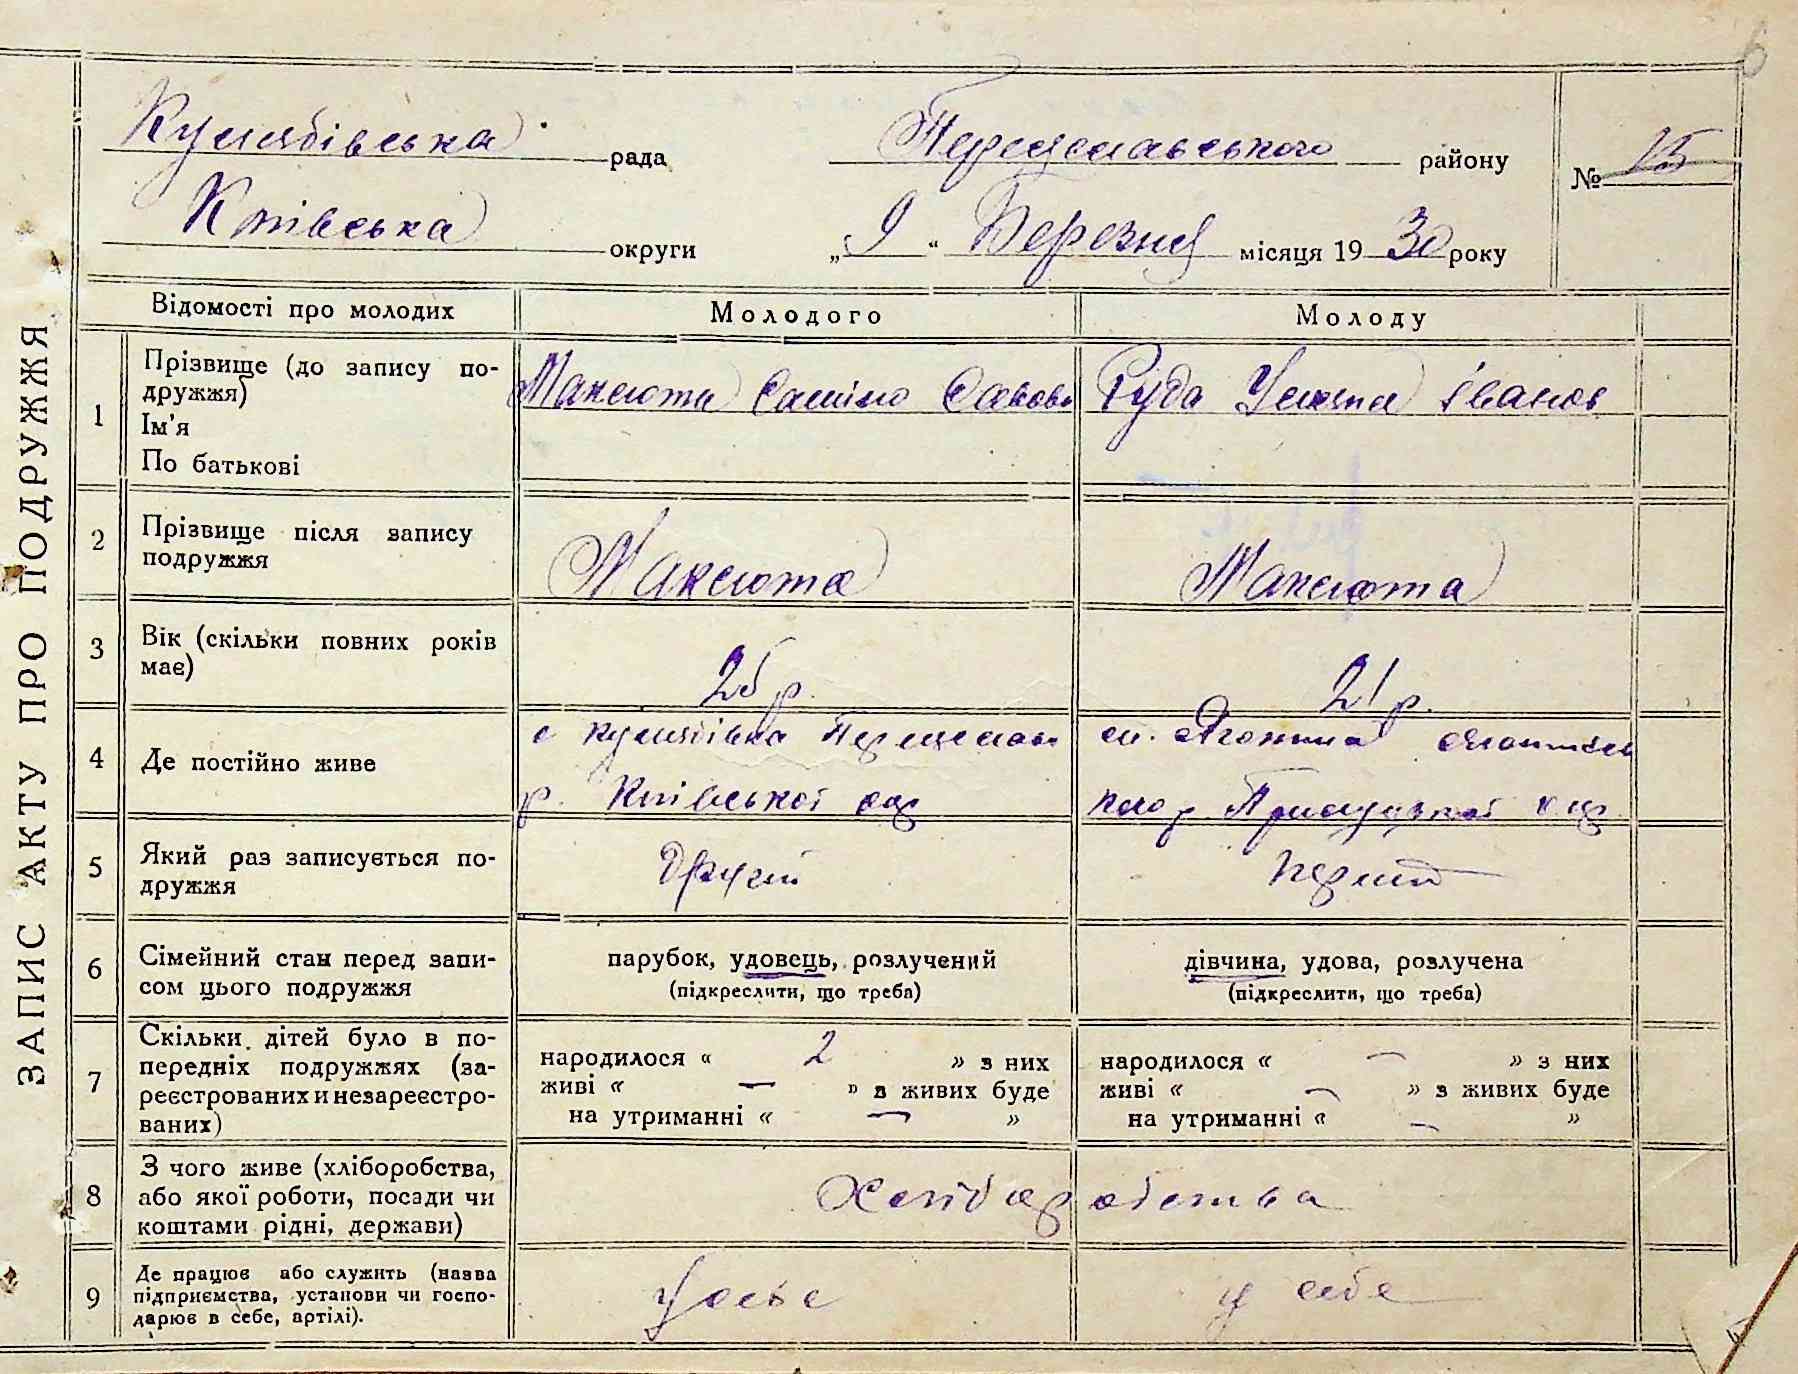 6
Кулябівська рада Переяславського району № 15
Київська округи „9“ Березня місяця 1930 року
ЗАПИС АКТУ ПРО ПОДРУЖЖЯ
Відомості про молодих Молодого Молоду
1 Прізвище (до запису по-
дружжя)
Ім'я
По батькові
Максюта Савов Руда Уляна Іванов
2 Прізвище після запису
подружжя
Максюта Максюта
3 Вік (скільки повних років
має)
25 р. 21 р.
4 Де постійно живе
с Кулябівка Переяслав
р. Київської окр
кого р. Прилуцької окр
5 Який раз записується по-
дружжя
Другий перший
6 Сімейний стан перед запи-
сом цього подружжя
парубок, удовець, розлучений дівчина, удова, розлучена
(підкреслити, що треба) (підкреслити, що треба)
7 Скільки дітей було в по-
передніх подружжях (за-
реєстрованих и незареєстро-
ваних)
народилося « 2 » з них народилося « — » з них
живі « — » з живих буде живі « — » з живих буде
на утриманні « — » на утриманні « — »
8 З чого живе (хліборобства,
або якої роботи, посади чи
коштами рідні, держави)
Хліборобства
9 Де працює або служить (назва
підприємства, установи чи госпо-
дарює в себе, артілі).
У себе у себе